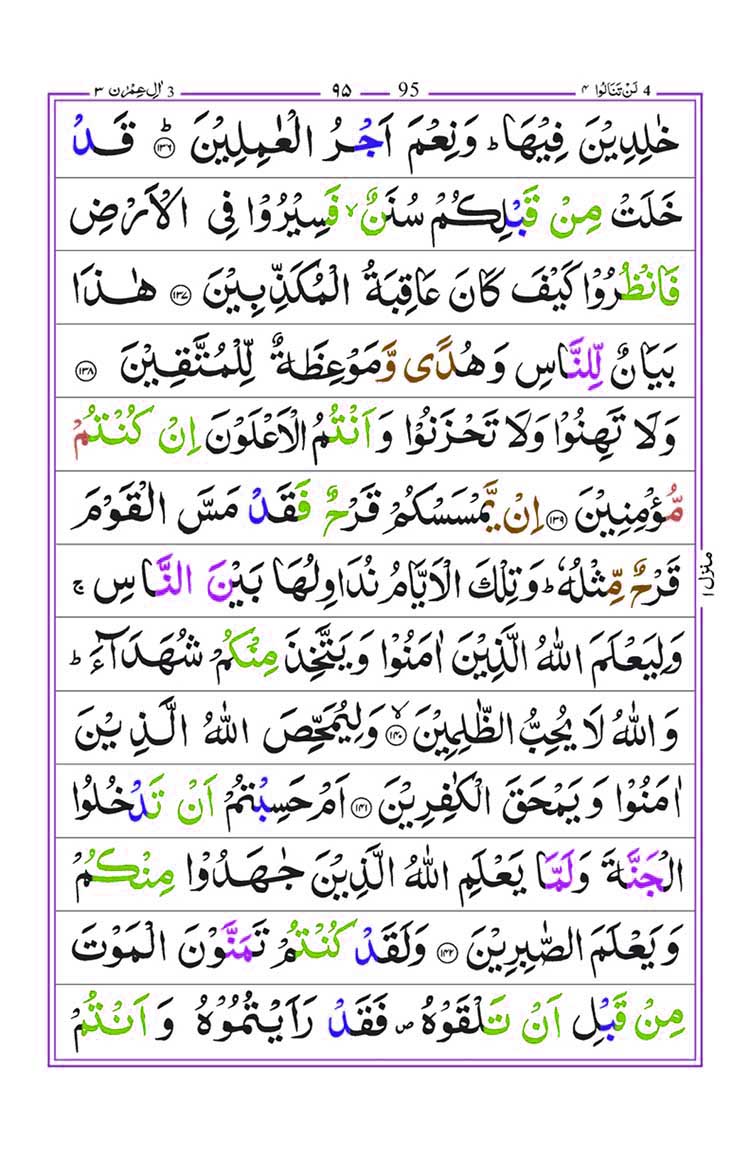 3 اٰلِ عِمْرٰن ٣ ٩٥ 95 4 لَنْ تَنَالُوْا ٤
خٰلِدِيْنَ فِيْهَا ؕ وَنِعْمَ اَجْرُ الْعٰمِلِيْنَ ؕ‏﴿۱۳۶﴾ قَدْ
خَلَتْ مِنْ قَبْلِكُمْ سُنَنٌ ۙ فَسِيْرُوْا فِى الْاَرْضِ
فَانْظُرُوْا كَيْفَ كَانَ عَاقِبَةُ الْمُكَذِّبِيْنَ ﴿۱۳۷﴾ هٰذَا
بَيَانٌ لِّلنَّاسِ وَهُدًى وَّمَوْعِظَةٌ لِّلْمُتَّقِيْنَ ﴿۱۳۸﴾
وَلَا تَهِنُوْا وَلَا تَحْزَنُوْا وَاَنْتُمُ الْاَعْلَوْنَ اِنْ كُنْتُمْ
مُّؤْمِنِيْنَ ﴿۱۳۹﴾ اِنْ يَّمْسَسْكُمْ قَرْحٌ فَقَدْ مَسَّ الْقَوْمَ
قَرْحٌ مِّثْلُهٗ ؕ وَتِلْكَ الْاَيَّامُ نُدَاوِلُهَا بَيْنَ النَّاسِ ۚ
وَلِيَعْلَمَ اللّٰهُ الَّذِيْنَ اٰمَنُوْا وَيَتَّخِذَ مِنْكُمْ شُهَدَآءَ ؕ
وَاللّٰهُ لَا يُحِبُّ الظّٰلِمِيْنَ ۙ‏﴿۱۴۰﴾ وَلِيُمَحِّصَ اللّٰهُ الَّذِيْنَ
اٰمَنُوْا وَيَمْحَقَ الْكٰفِرِيْنَ ﴿۱۴۱﴾ اَمْ حَسِبْتُمْ اَنْ تَدْخُلُوا
الْجَنَّةَ وَلَمَّا يَعْلَمِ اللّٰهُ الَّذِيْنَ جٰهَدُوْا مِنْكُمْ
وَيَعْلَمَ الصّٰبِرِيْنَ ﴿۱۴۲﴾ وَلَقَدْ كُنْتُمْ تَمَنَّوْنَ الْمَوْتَ
مِنْ قَبْلِ اَنْ تَلْقَوْهُ ص فَقَدْ رَاَيْتُمُوْهُ وَاَنْتُمْ
منزل ١